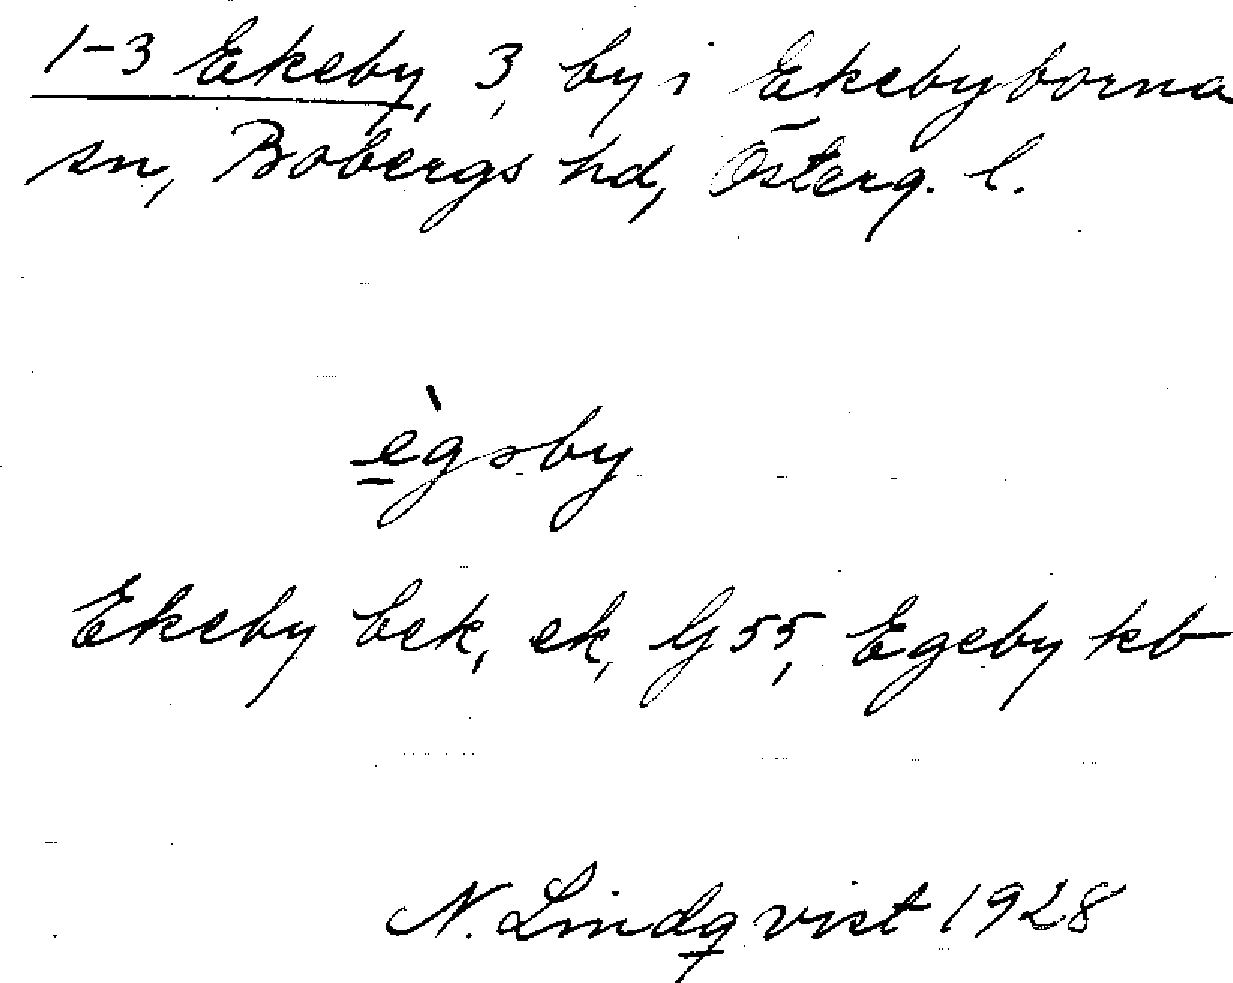 1-3 Ekeby, 3, by i Ekebyborna
sn, Bobergs hd, Österg. l.
ègsby
Ekeby bek, ek, G 55, Egeby kb
N. Lindqvist 1928